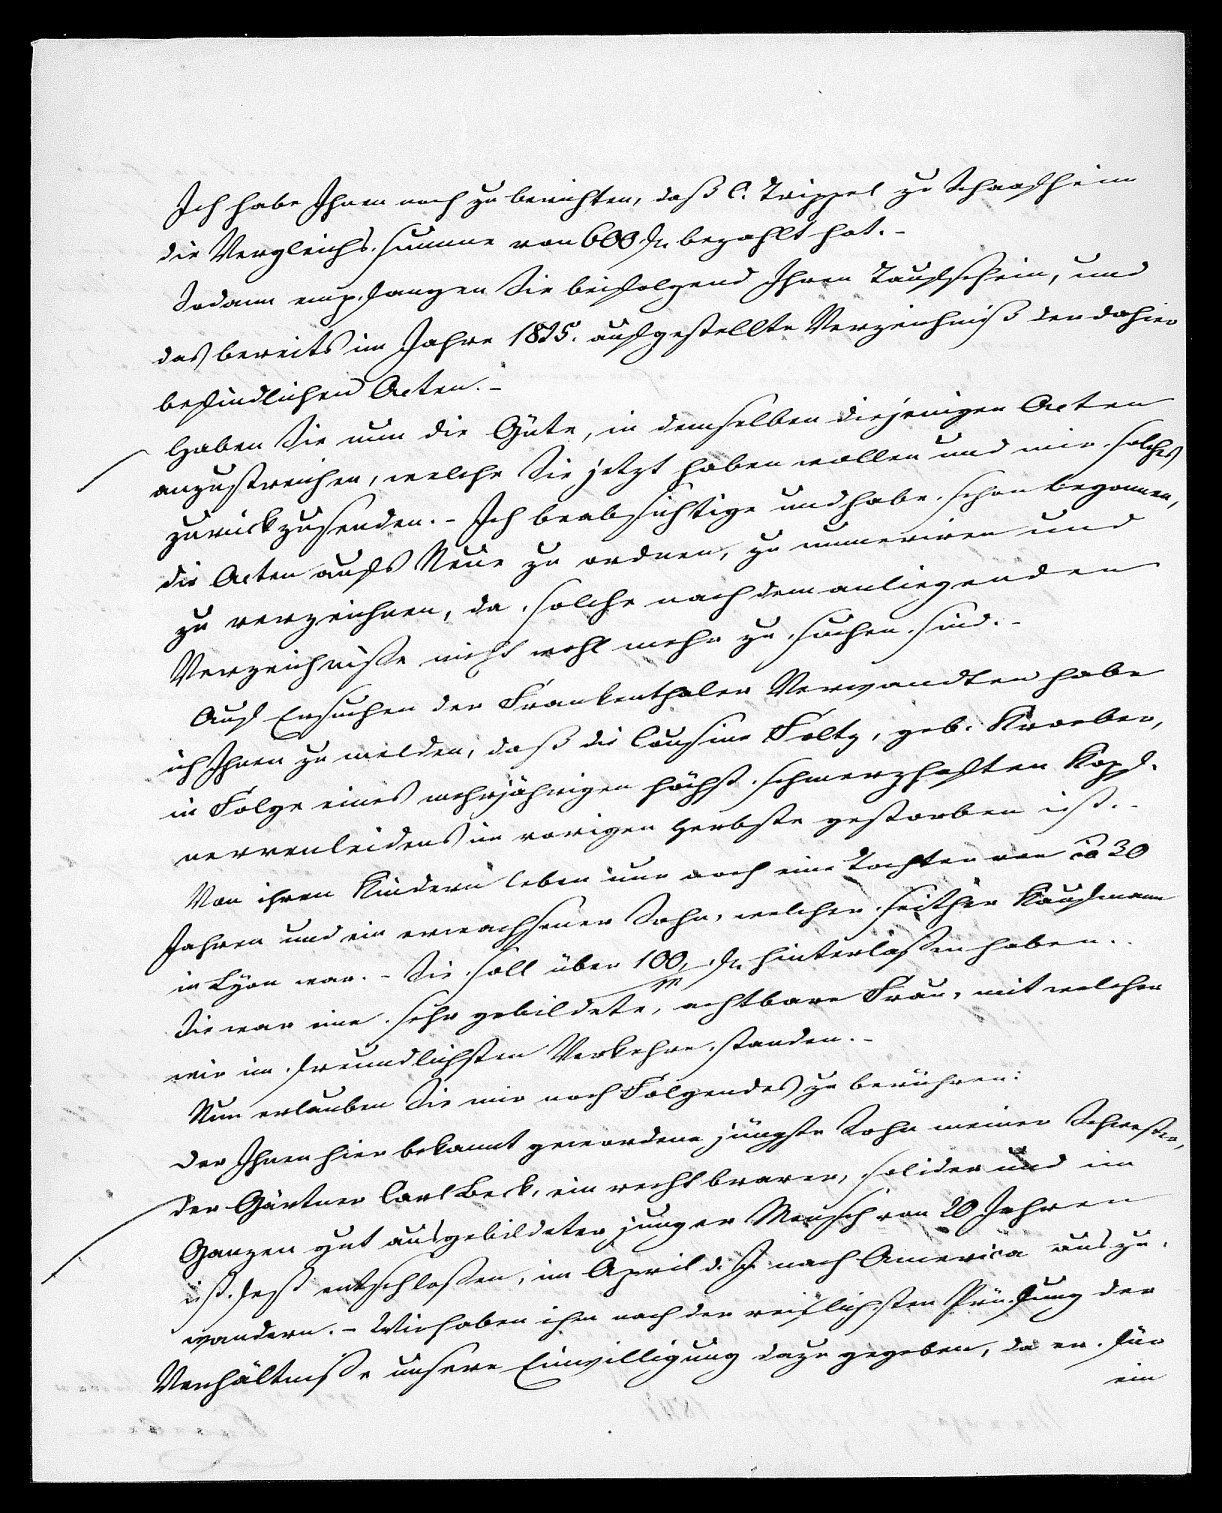 Ich habe Ihnen noch zu berichten, daß C. Trippel zu Schaafheim
die Vergleichs-Summe von 600 fl. bezahlt hat. –
Sodann empfangen Sie beifolgend Ihren Taufschein, und
das bereits im Jahre 1835. aufgestellte Verzeichniß der dahier
befindlichen Acten. –
Haben Sie nun die Güte, in demselben diejenigen Acten
anzustreichen, welche Sie jetzt haben wollen und mir solches
zurückzusenden. – Ich beabsichtige und habe schon begonnen,
die Acten aufs Neue zu ordnen, zu numeriren und
zu verzeichnen, da solche nach dem anliegenden
Verzeichniße nicht wohl mehr zu suchen sind. –
Auf Ersuchen der Frankenthaler Verwandten habe
ich Ihnen zu melden, daß die Cousine Foltz, geb. Kroeber,
in Folge eines mehrjährigen höchst schmerzhaften Kopf-
nervenleidens im vorigen Herbste gestorben ist. –
Von ihren Kindern leben nur noch eine Tochter von ca 30
Jahren und ein erwachsener Sohn, welcher seither Kaufmann
in Lyon war. – Sie soll über 100/m fl. hinterlaßen haben. –
Sie war eine sehr gebildete, achtbare Frau, mit welcher
wir im freundlichsten Verkehre standen. –
Nun erlauben Sie mir noch Folgendes zu berühren:
Der Ihnen hier bekannt gewordene jüngste Sohn meiner Schwester,
der Gärtner Carl Beck, ein recht braver, solider und im
Ganzen gut ausgebildeter junger Mensch von 20 Jahren
ist fest entschloßen, im April d. J. nach America auszu-
wandern. – Wir haben ihm nach der reiflichsten Prüfung der
Verhältniße unsere Einwilligung dazu gegeben, da er für
ein